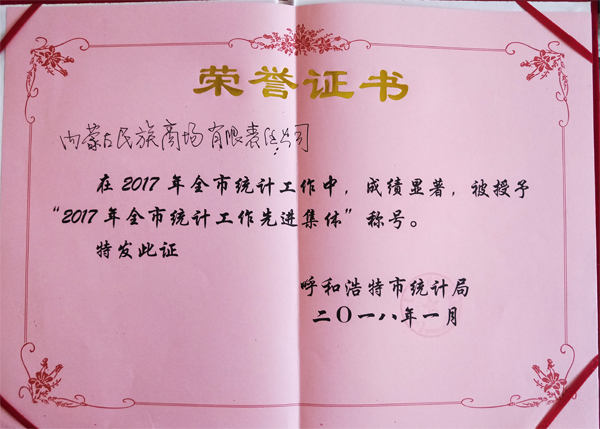 荣誉证书
内蒙古民族商场有限责任公司
在2017年全市统计工作中，成绩显著，被授予
“2017年全市统计工作先进集体”称号。
特发此证
呼和浩特市统计局
二〇一八年一月